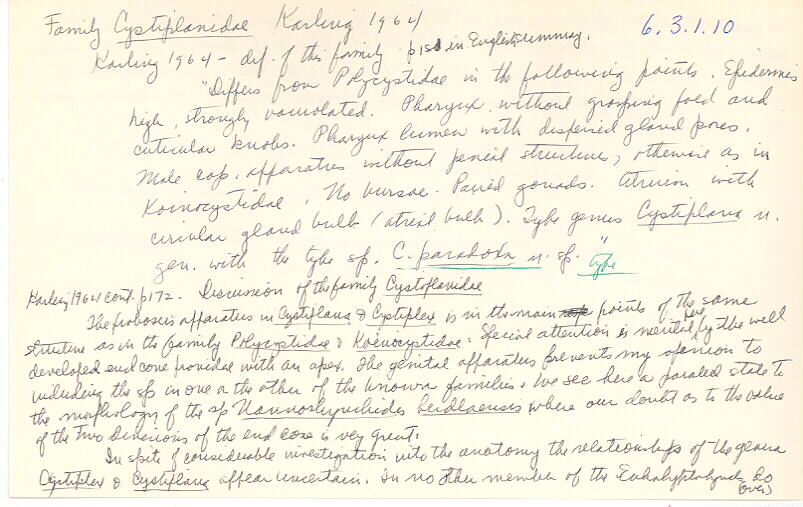 Family Cystiplanidae Karling 1964 6.3.1.10
Karling 1964 - def. of this family p 150 in English summary.
"Differs from Polycystidae in the following points. Epidermis
high, strongly vacuolated. Pharynx without grasping fold and
cuticular knobs. Pharynx lumen with dispersed gland pores.
Male cop. apparatus without penial structures, otherwise as in
Koinocystidae. No bursae. Paired gonads. Atrium with
circular gland bulb (atrial bulb). Type genus Cystiplana n.
gen. with the type sp. C. paradoxa n. sp." type
Karling 1964 cont. p 172. Discussion of the family
The proboscis apparatus in Cystiplana & Cystiplex is in its main points of the same
structure as in the family Polycystidae & Koinocystidae. Special attention is merited here by the well
developed end cone provided with an apex. The genital apparatus prevents my opinion to
including the sp in one or the other of the known families. We see here a parallel state to
the morphology of the sp where our doubt as to the value
of the two divisions of the end cone is very great.
In spite of considerable investigation into the anatomy the relationships of the genera
Cystiplex & Cystiplana appear uncertain. In no other member of the do
(over)